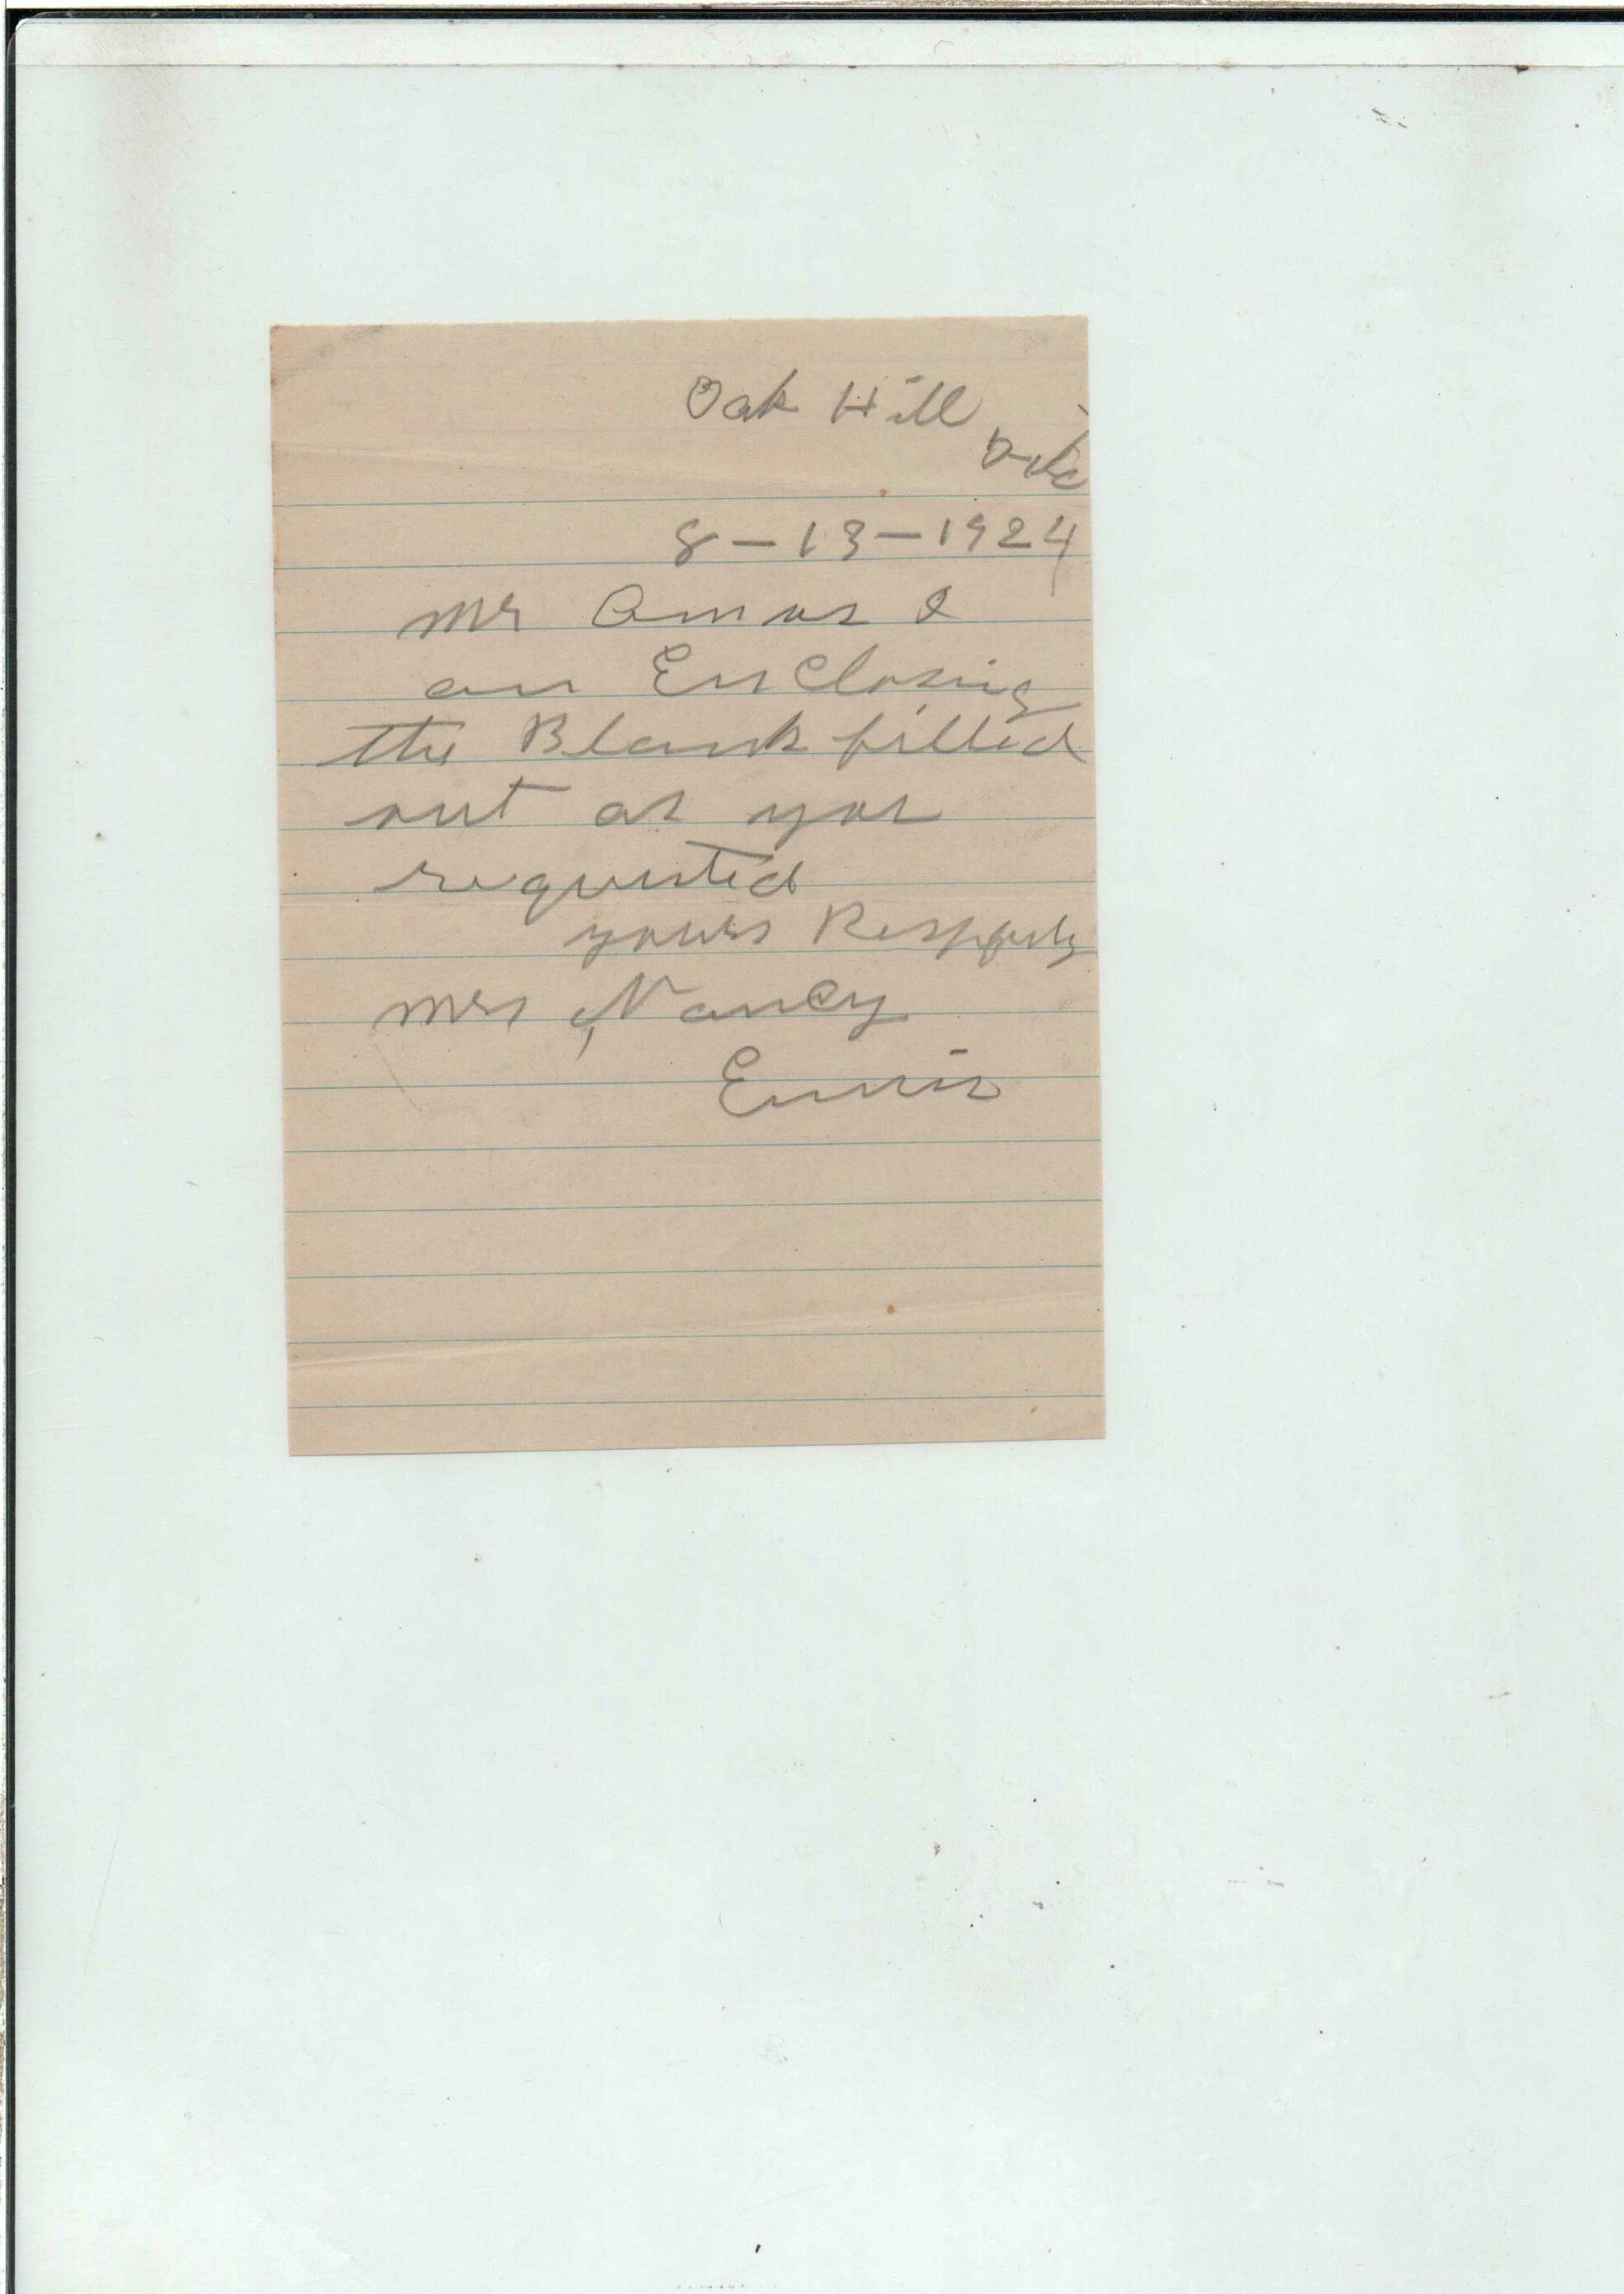 Oak Hill
8-13-1924
Mr Amos I
am Enclosing
the Blank filled
out as you
requested
yours Respfuly
Mrs Nancy
Ennis